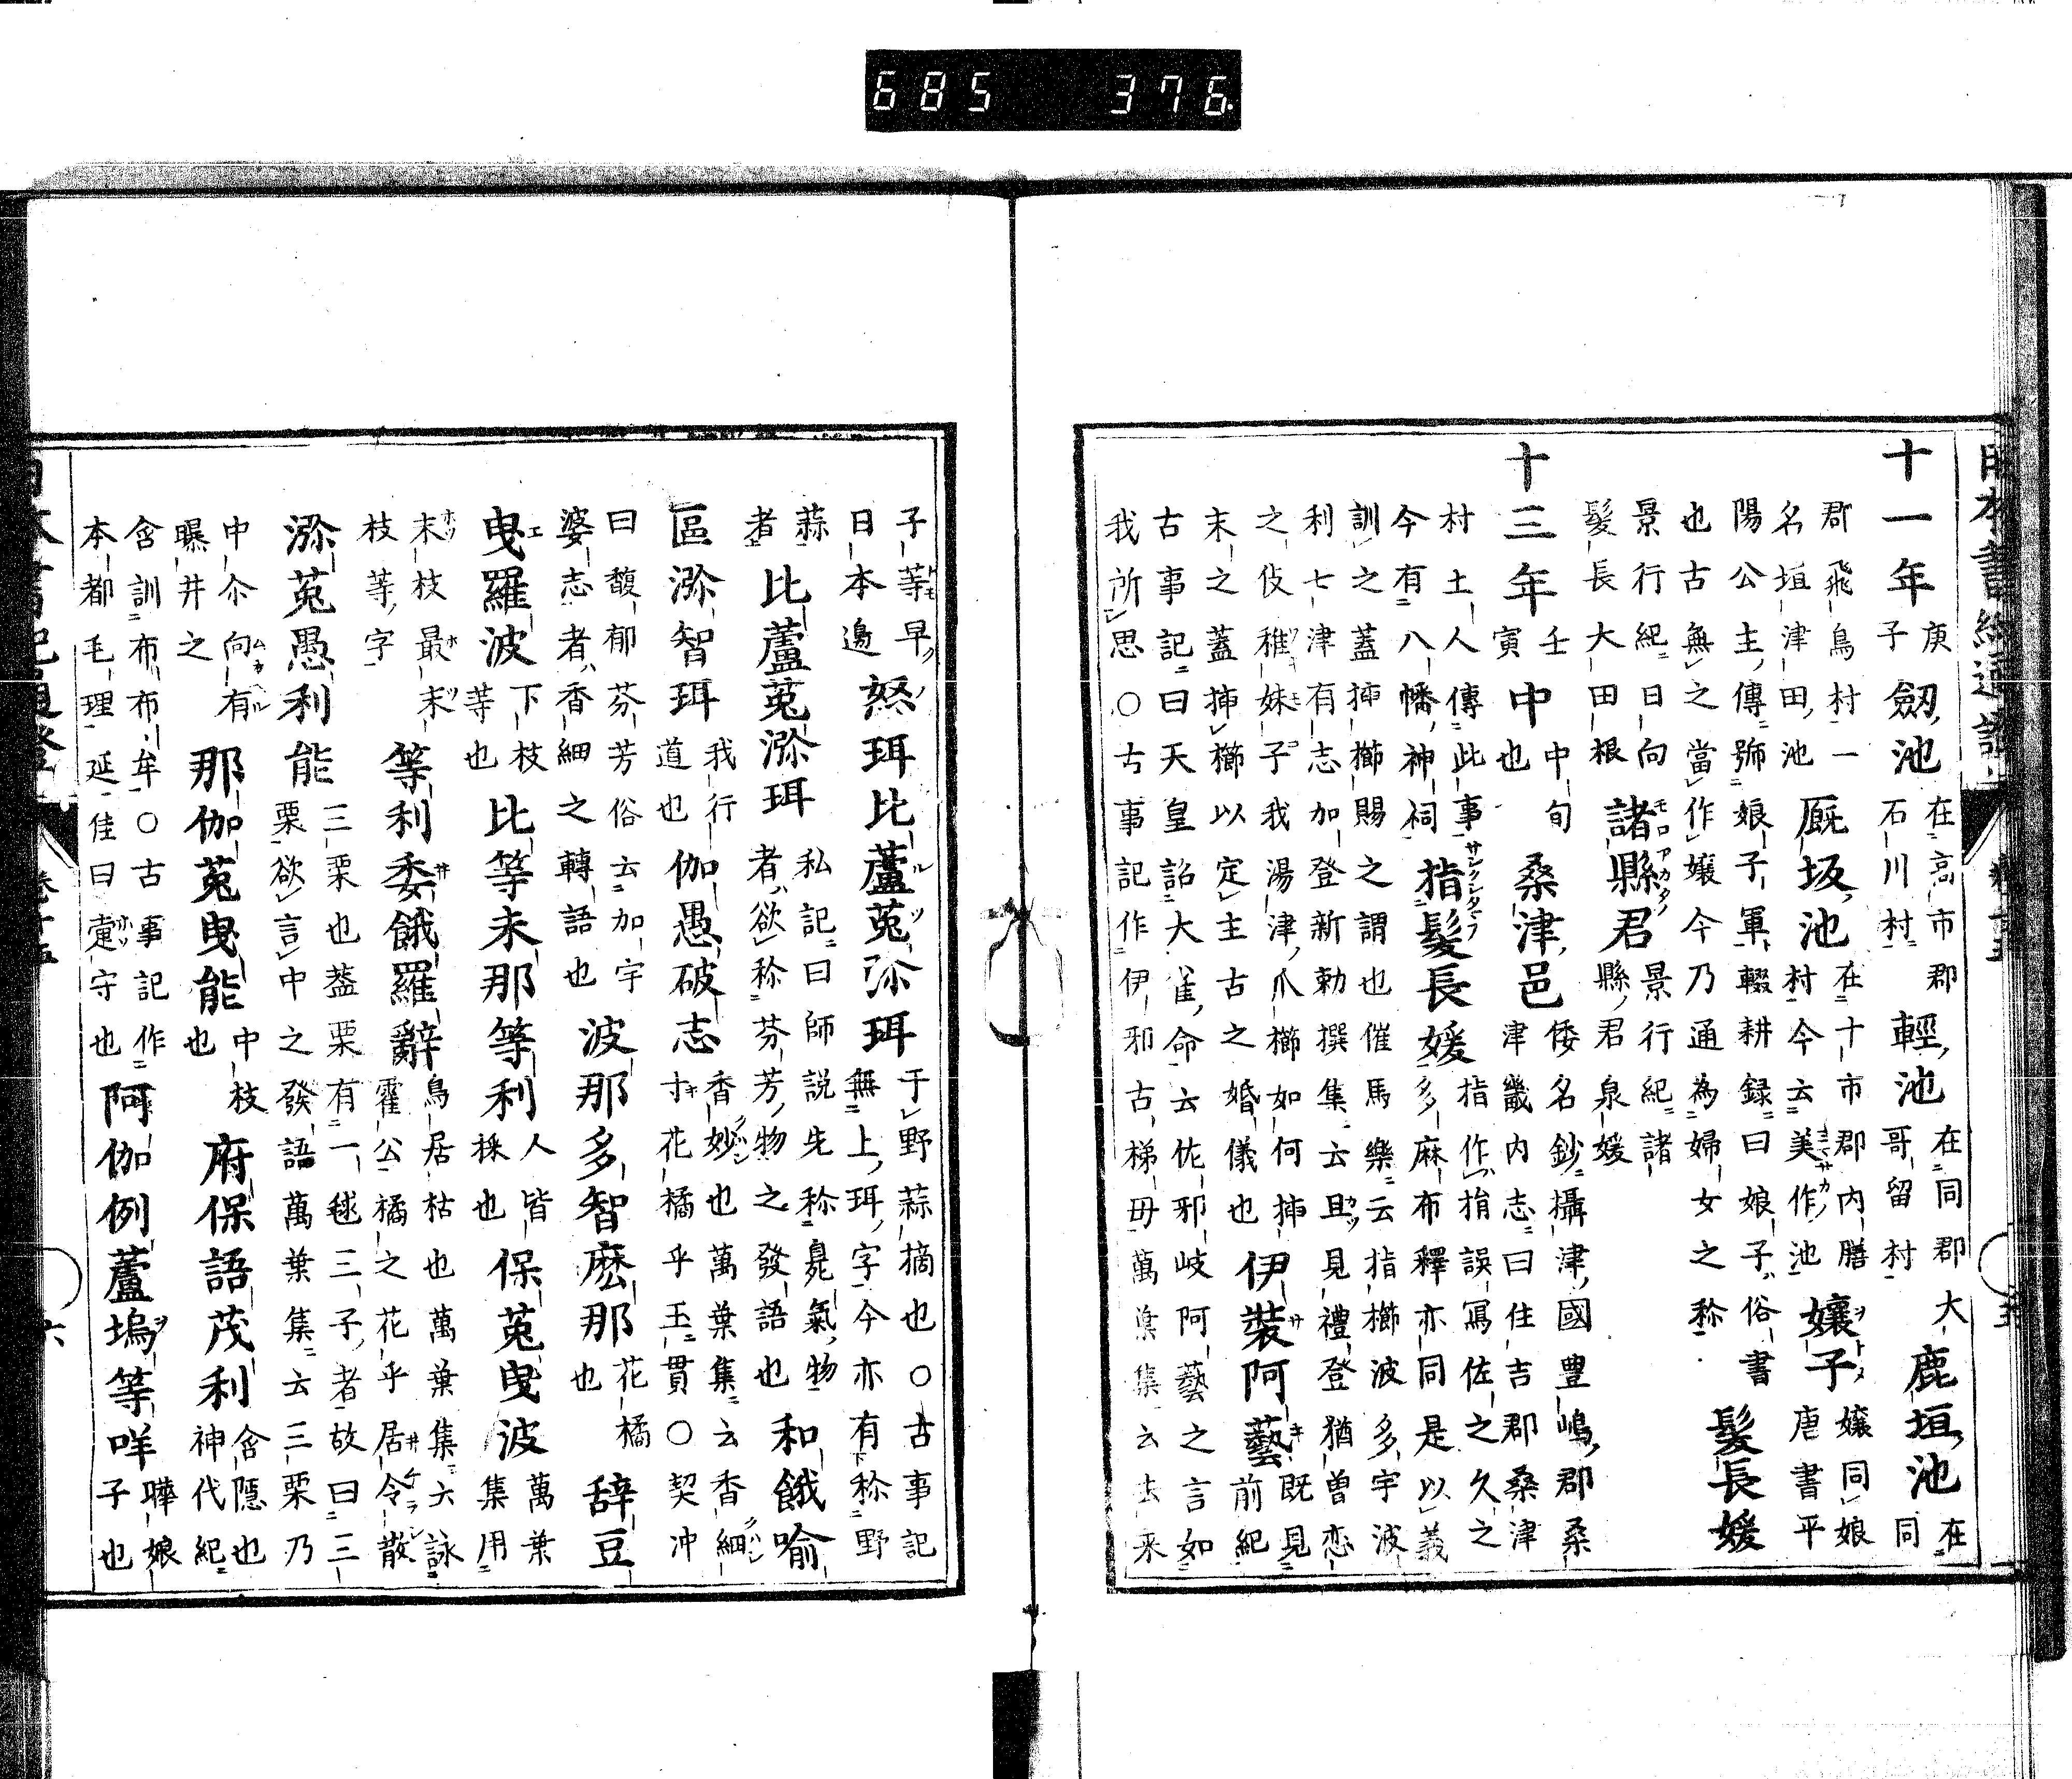 日本書紀通證 卷十五 五
十一年 庚子 劔池 在高市郡石川村 輕池 在同郡大哥留村 鹿垣池 在同
郡飛鳥村一名垣津田池 厩坂池 在十市郡内膳村今云美作池 孃子 孃同娘唐書平
陽公主傳號娘子軍輟耕録曰娘子俗書也古無之當作孃今乃通為婦女之称 髮長媛
景行紀日向髮長大田根 諸縣君 景行紀諸縣君泉媛
十三年 壬寅 中 中旬也 桑津邑 倭名鈔攝津國豊嶋郡桑津畿内志曰住吉郡桑津
村土人傳此事今有八幡神祠 指髮長媛 指作指誤冩佐之久之多麻布釋亦同是以義
訓之蓋挿櫛賜之謂也催馬樂云指櫛波多宇波利七津有志加登新勅撰集云且見禮登猶曽恋
之伎稚妹子我湯津爪櫛如何挿末之蓋挿櫛以定主古之婚儀也 伊裝阿藝 既見前紀
古事記曰天皇詔大雀命云佐邪岐阿藝之言如我所思○古事記作伊邪古梯毋萬葉集云去来
子等早日本邊 怒珥比蘆菟弥珥 于野蒜摘也○古事記無上珥字今亦有称野
蒜者 比蘆菟瀰珥 私記曰師説先称臰氣物者欲称芬芳物之發語也 和餓喻
區瀰智珥 我行道也 伽愚破志 香妙也萬葉集云香細寸花橘乎玉貫○契冲
曰馥郁芬芳俗云加宇婆志者香細之轉語也 波那多智麽那 花橘也 辞豆
曳羅波 下枝等也 比等未那等利 人皆採也 保菟曳波 萬葉集用
末枝最末枝等字 等利委餓羅辭 鳥居枯也萬葉集六詠霍公橘之花乎居令散
瀰菟愚利能 三栗也葢栗有一毬三子者故曰三栗欲言中之發語萬葉集云三栗乃
中尒向有曝井之 那伽菟曳能 中枝也 府保語茂利 含隱也神代紀
含訓布布牟○古事記作本都毛理延佳曰守也 阿伽例蘆塢等咩 曄娘子也
日本書紀通證 卷十五 六